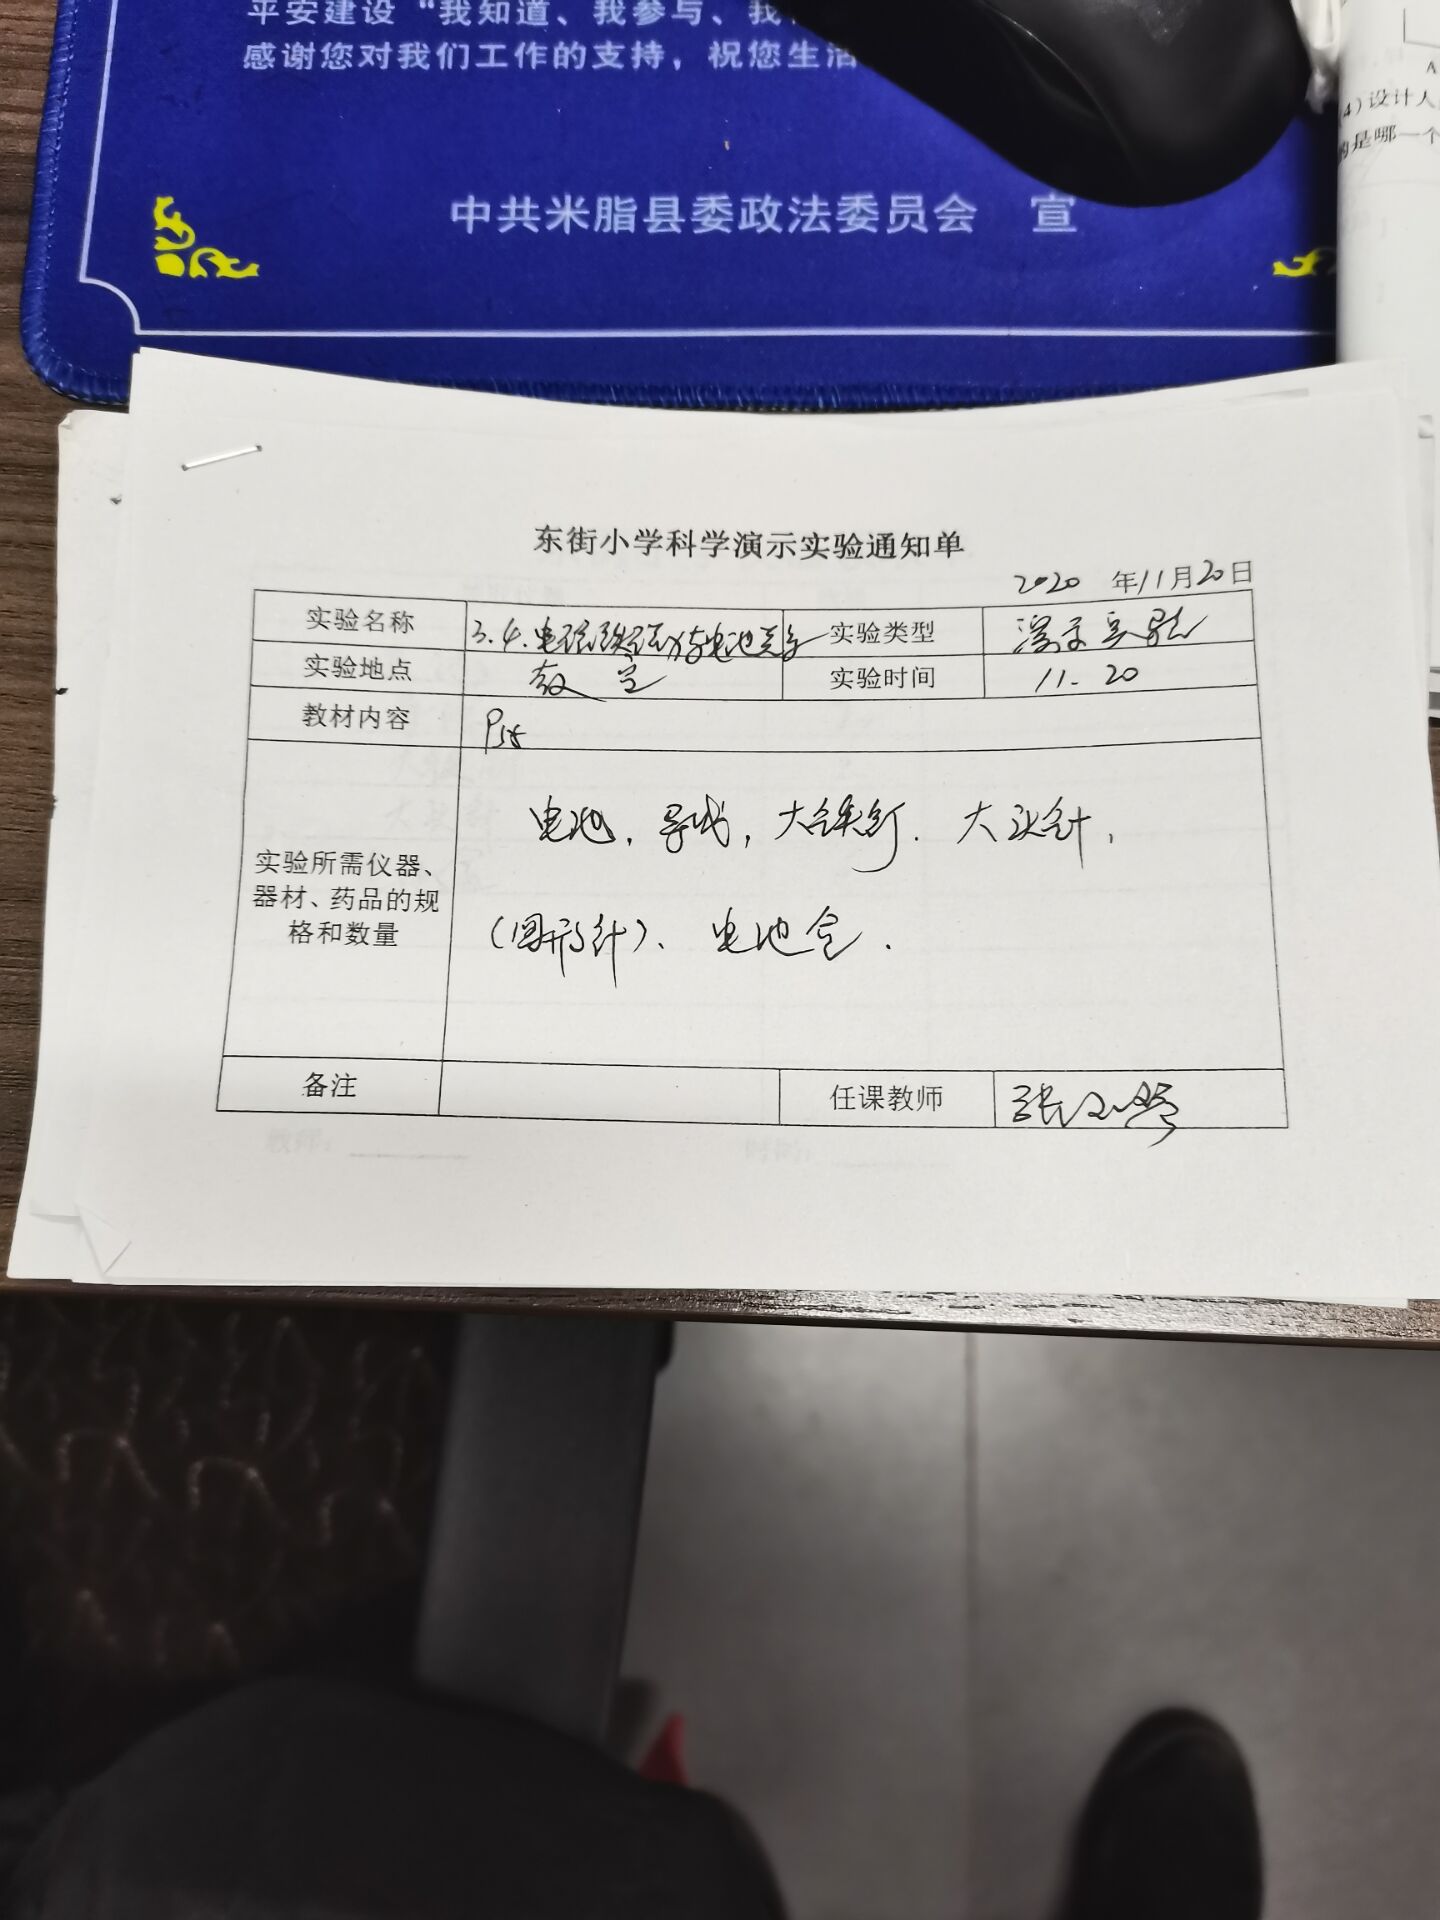 平安建设“我知道、我参与、我
感谢您对我们工作的支持，祝您生活
中共米脂县委政法委员会 宣
4）设计人
的是哪一个
东街小学科学演示实验通知单
2020 年11月20日
实验名称 3.4.电磁铁磁力与电池关系 实验类型 演示实验
实验地点 教室 实验时间 11.20
教材内容
电池，导线，大铁钉．大头针，
实验所需仪器、
器材、药品的规
格和数量
（回形针）、电池盒．
备注 任课教师